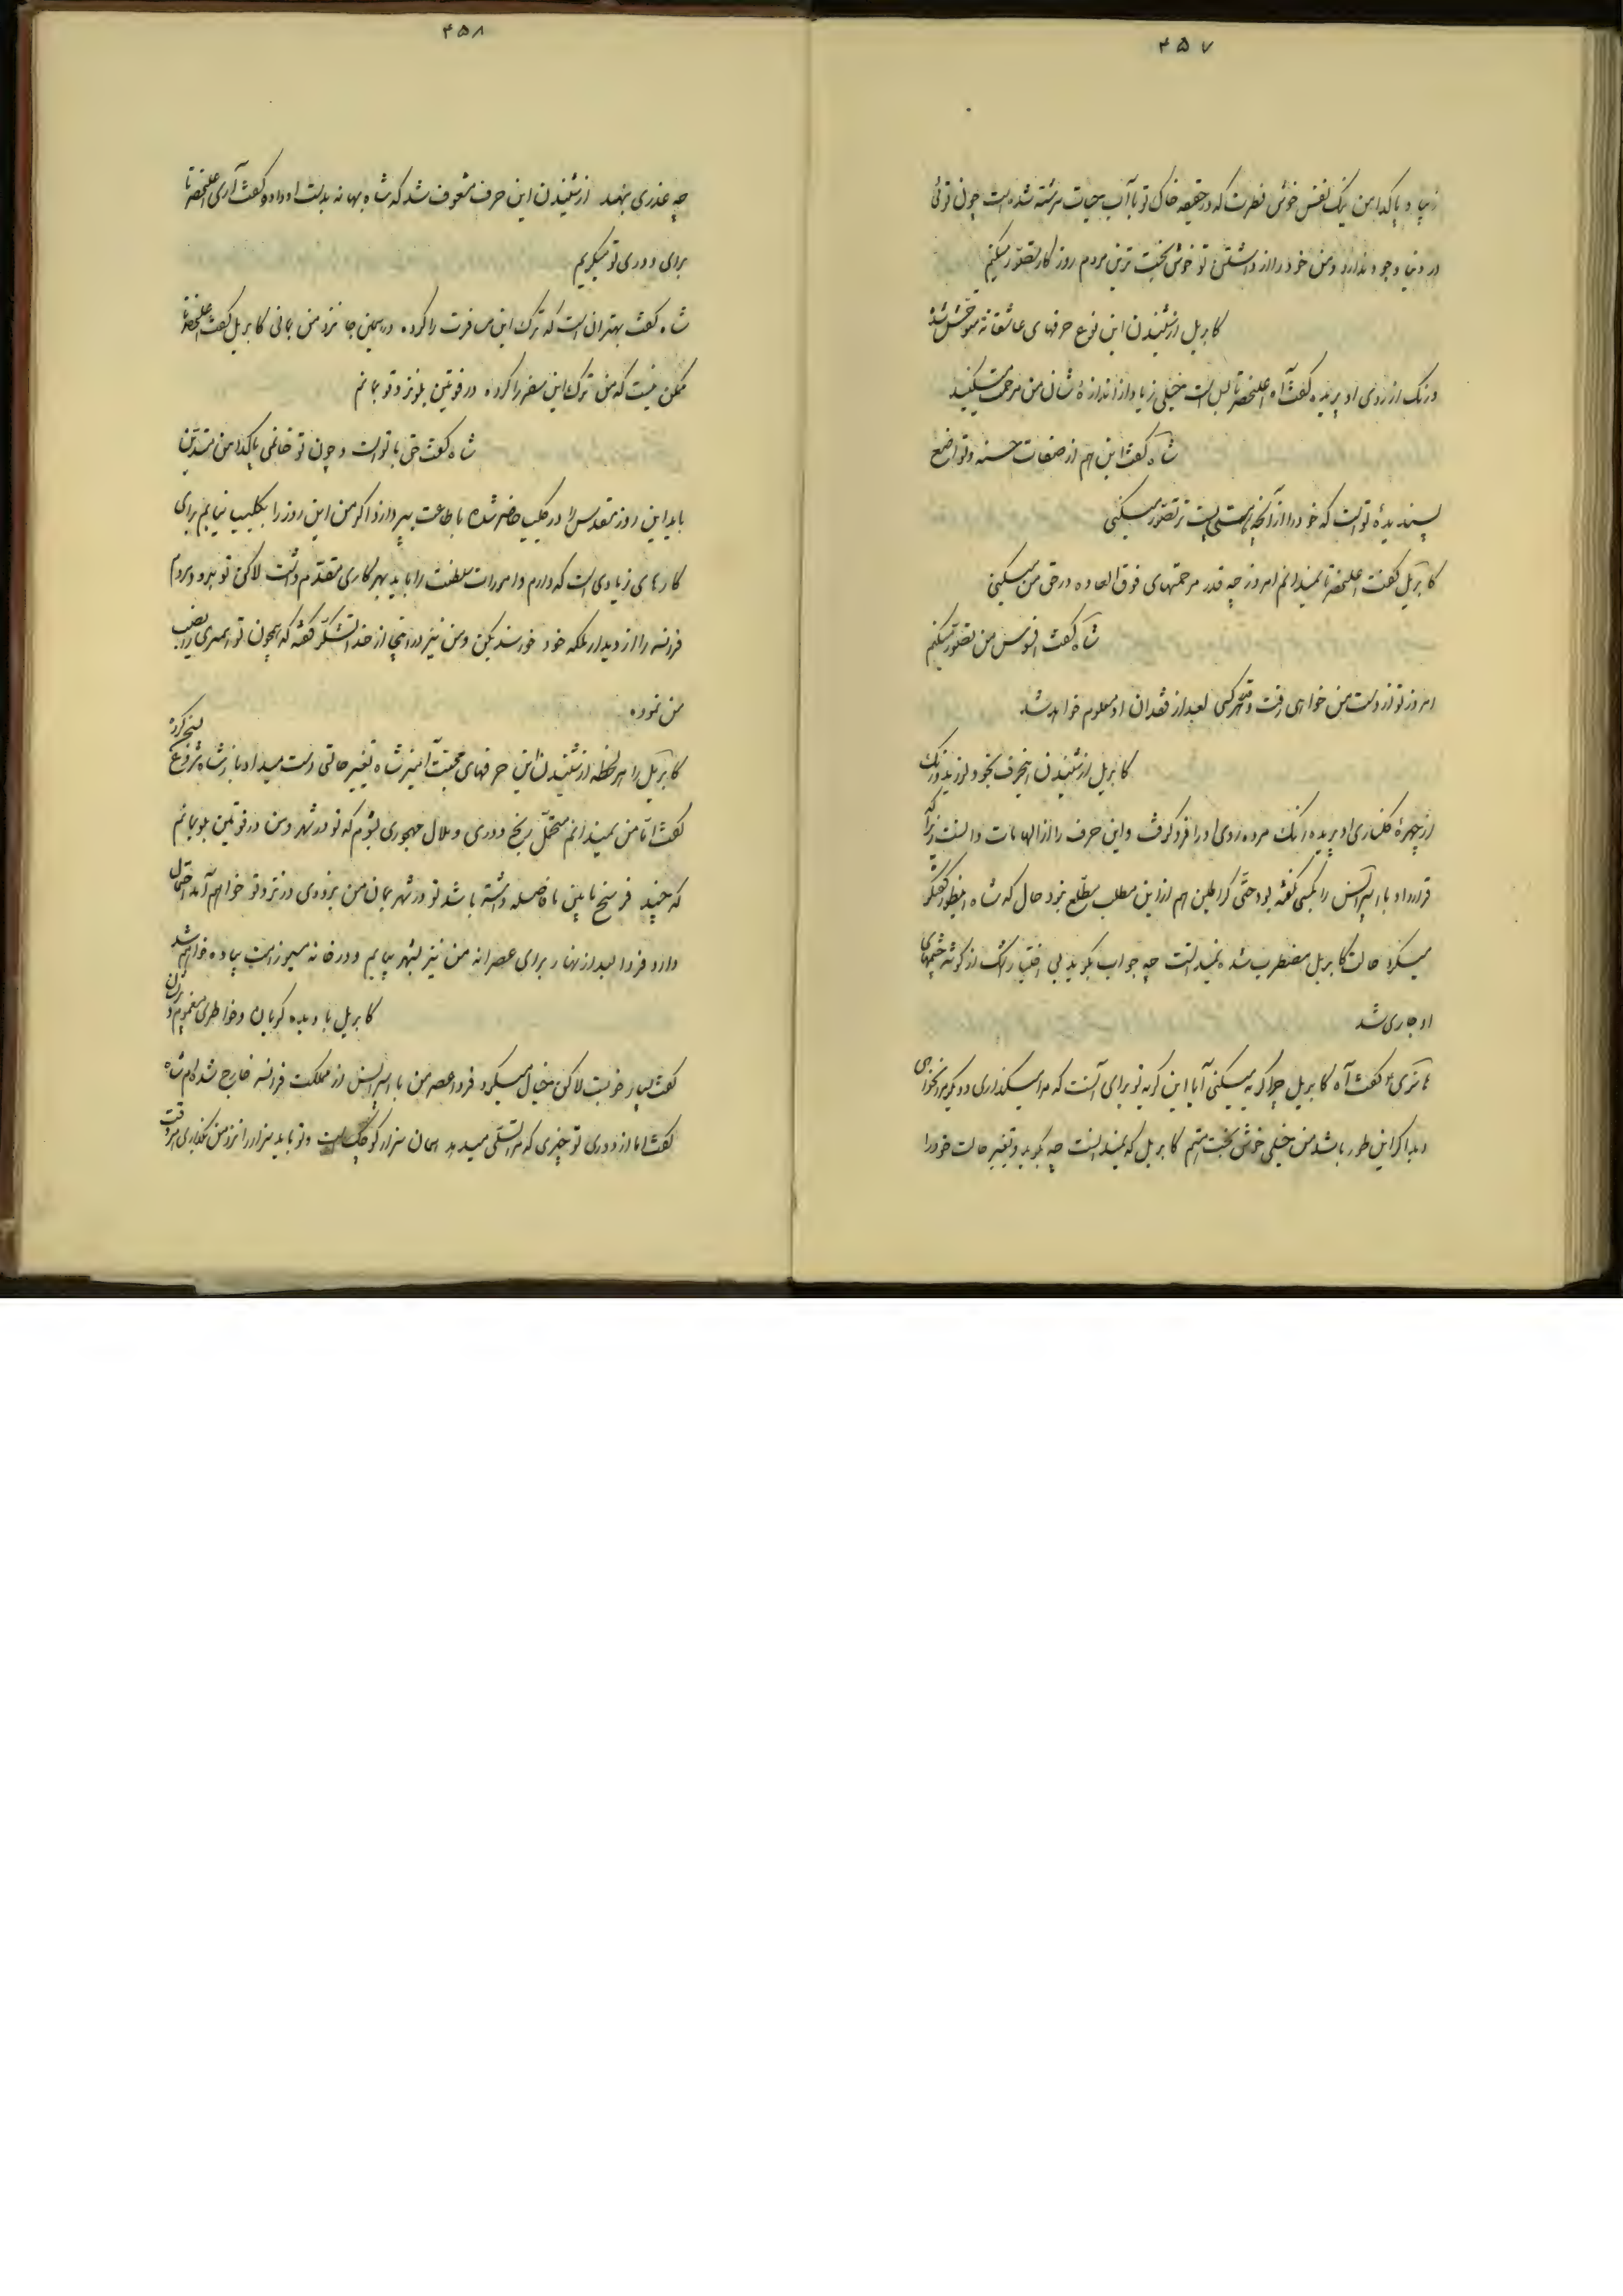 ۴۵۷
زیبا و پاکدامن نیک نفس خوش فطرت که در حقیقه خاک تو با آب حیات سرشته شده است چون توئی
در دنیا وجود ندارد و من خود را از داشتن تو خوش بخت ترین مردم روزگار تصوّر میکنم
کابریل از شنیدن این نوع حرفهای عاشقانه متوحّش شد
و رنگ از روی او پریده گفت آه اعلیحضرتا بس است خیلی زیاد از اندازهٔ شان من مرحمت میکنید
شاه گفت این هم از صفات حسنه و تواضع
پسندیدهٔ تو است که خود را از آنچه هستی پست تر تصوّر میکنی
کابریل گفت اعلیحضرتا نمیدانم امروز چه قدر مرحمتهای فوق العاده در حق من میکنی
شاه گفت افسوس من تصوّر میکنم
امروز تو از دست من خواهی رفت و قدر هر کسی بعد از فقدان او معلوم خواهد شد
کابریل از شنیدن اینحرف بخود لرزید و رنگ
از چهرهٔ گلناری او پریده رنگ مرده روی او را فرو گرفت و این حرف را از الهامات دانست زیرا که
قرارداد با اسپرانس را بکسی نگفته بود حتّی گراطین هم از این مطلب مطّلع نبود حال که شاه اینطور گفتگو
میکرد حالت کابریل مضطرب شده نمیدانست چه جواب بگوید بی اختیار اشک از گوشه چشمهای
او جاری شد
هانری ۴ گفت آه کابریل چرا گریه میکنی آیا این گریه تو برای آنست که مرا میگذاری و دیگر مرا نخواهی
دید اگر این طور باشد من خیلی خوش بخت هستم کابریل که نمیدانست چه بگوید و تغییر حالت خود را
۴۵۸
چه عذری بنهد از شنیدن این حرف مشعوف شد که شاه بهانه بدست او داده گفت آری اعلیحضرتا
برای دوری تو میگریم
شاه گفت بهتر ان است که ترک این مسافرت را کرده در همین جا نزد من بمانی کابریل گفت اعلیحضرتا
ممکن نیست که من ترک این سفر را کرده در فونتن بلو نزد تو بمانم
شاه گفت حق با تو است و چون تو خانمی پاکدامن متدیّن
باید این روز مقدس را در کلیسا حاضر شده باطاعت بپردازد اگر من این روز را بکلیسا نیایم برای
کارهای زیادی است که دارم و امورات سلطنت را باید بهر کاری مقدّم داشت لاکن تو برو و مردم
فرانسه را از دیدار ملکه خود خورسند بکن و من نیز در اینجا از خدا تشکّر کنم که همچون تو همسری را نصیب
من نموده
کابریل را هر لحظه از شنیدن این حرفهای محبت آمیز شاه تغییر حالتی دست میداد باز شاه شروع بسخن کرده
گفت امّا من نمیدانم متحمّل رنج دوری و ملال مهجوری بشوم که تو در شهر و من در فونتن بلو بمانم
که چند فرسخ مابین ما فاصله داشته باشد تو در شهر بمان من بزودی در نزد تو خواهم آمد احتمال
دارد فردا بعد از نهار برای عصرانه من نیز بشهر بیایم و در خانه پیاده خواهم شد
کابریل با دیده گریان و خاطری مغموم و پژمان
گفت بسیار خوبست لاکن خیال میکرد فردا عصر من با اسپرانس از مملکت فرانسه خارج شده‌ام شاه
گفت امّا از دوری تو چیزی که مرا تسلّی میدهد همان سزار کوچک است و تو باید سزار را نزد من بگذاری